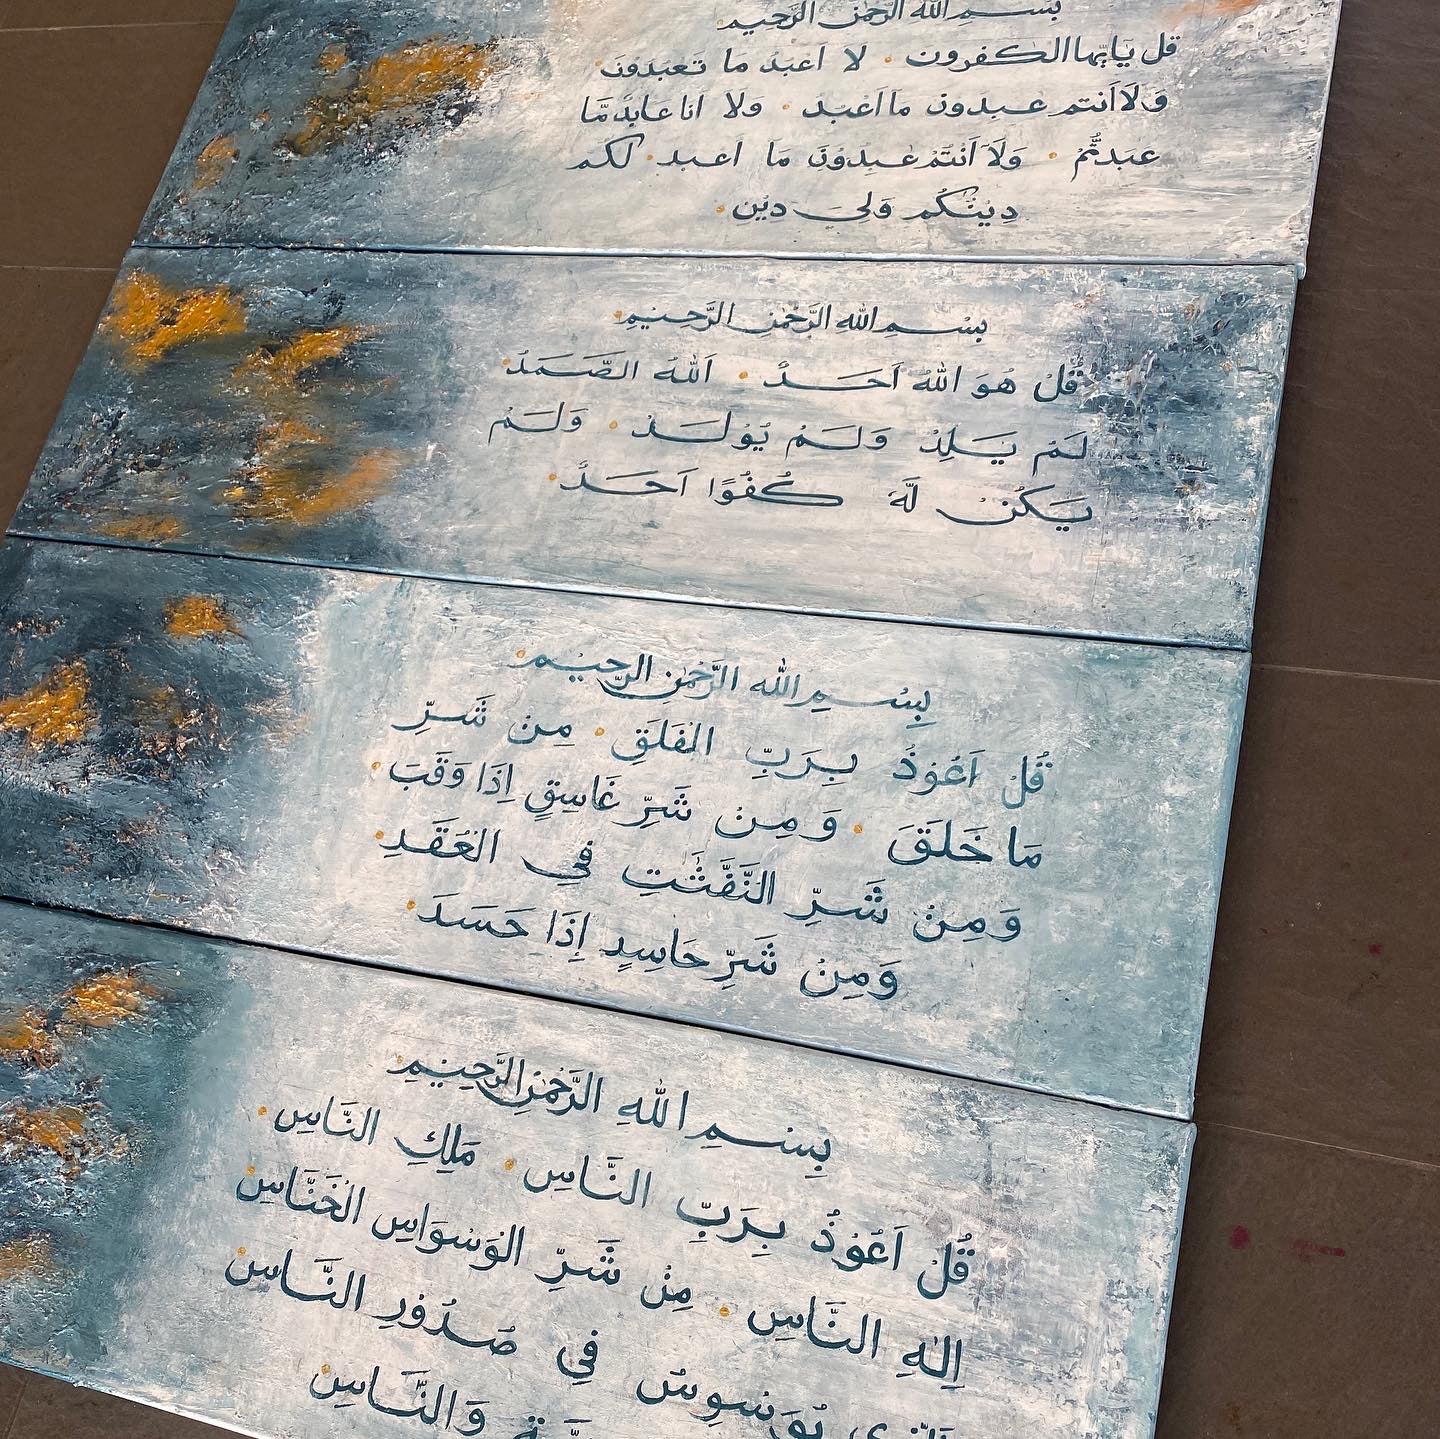 بسم الله الرحمن الرحيم
قل يايها الكفرون • لا اعبد ما تعبدون •
ولا انتم عبدون ما اعبد • ولا انا عابد ما
عبدتم • ولا انتم عبدون ما اعبد • لكم
دينكم ولي دين •
بسم الله الرحمن الرحيم •
قُلْ هُوَ اللهُ اَحَدٌ • اَللهُ الصَّمَدُ •
لَمْ يَلِدْ وَلَمْ يُوْلَدْ • وَلَمْ
يَكُنْ لَّهٗ كُفُوًا اَحَدٌ •
بِسْمِ اللهِ الرَّحْمٰنِ الرَّحِيْمِ •
قُلْ اَعُوْذُ بِرَبِّ الْفَلَقِ • مِنْ شَرِّ
مَا خَلَقَ • وَمِنْ شَرِّ غَاسِقٍ اِذَا وَقَبَ •
وَمِنْ شَرِّ النَّفّٰثٰتِ فِي الْعُقَدِ •
وَمِنْ شَرِّ حَاسِدٍ اِذَا حَسَدَ •
بِسْمِ اللهِ الرَّحْمٰنِ الرَّحِيْمِ •
قُلْ اَعُوْذُ بِرَبِّ النَّاسِ • مَلِكِ النَّاسِ •
اِلٰهِ النَّاسِ • مِنْ شَرِّ الْوَسْوَاسِ الْخَنَّاسِ •
يُوَسْوِسُ فِي صُدُوْرِ النَّاسِ •
وَالنَّاسِ •